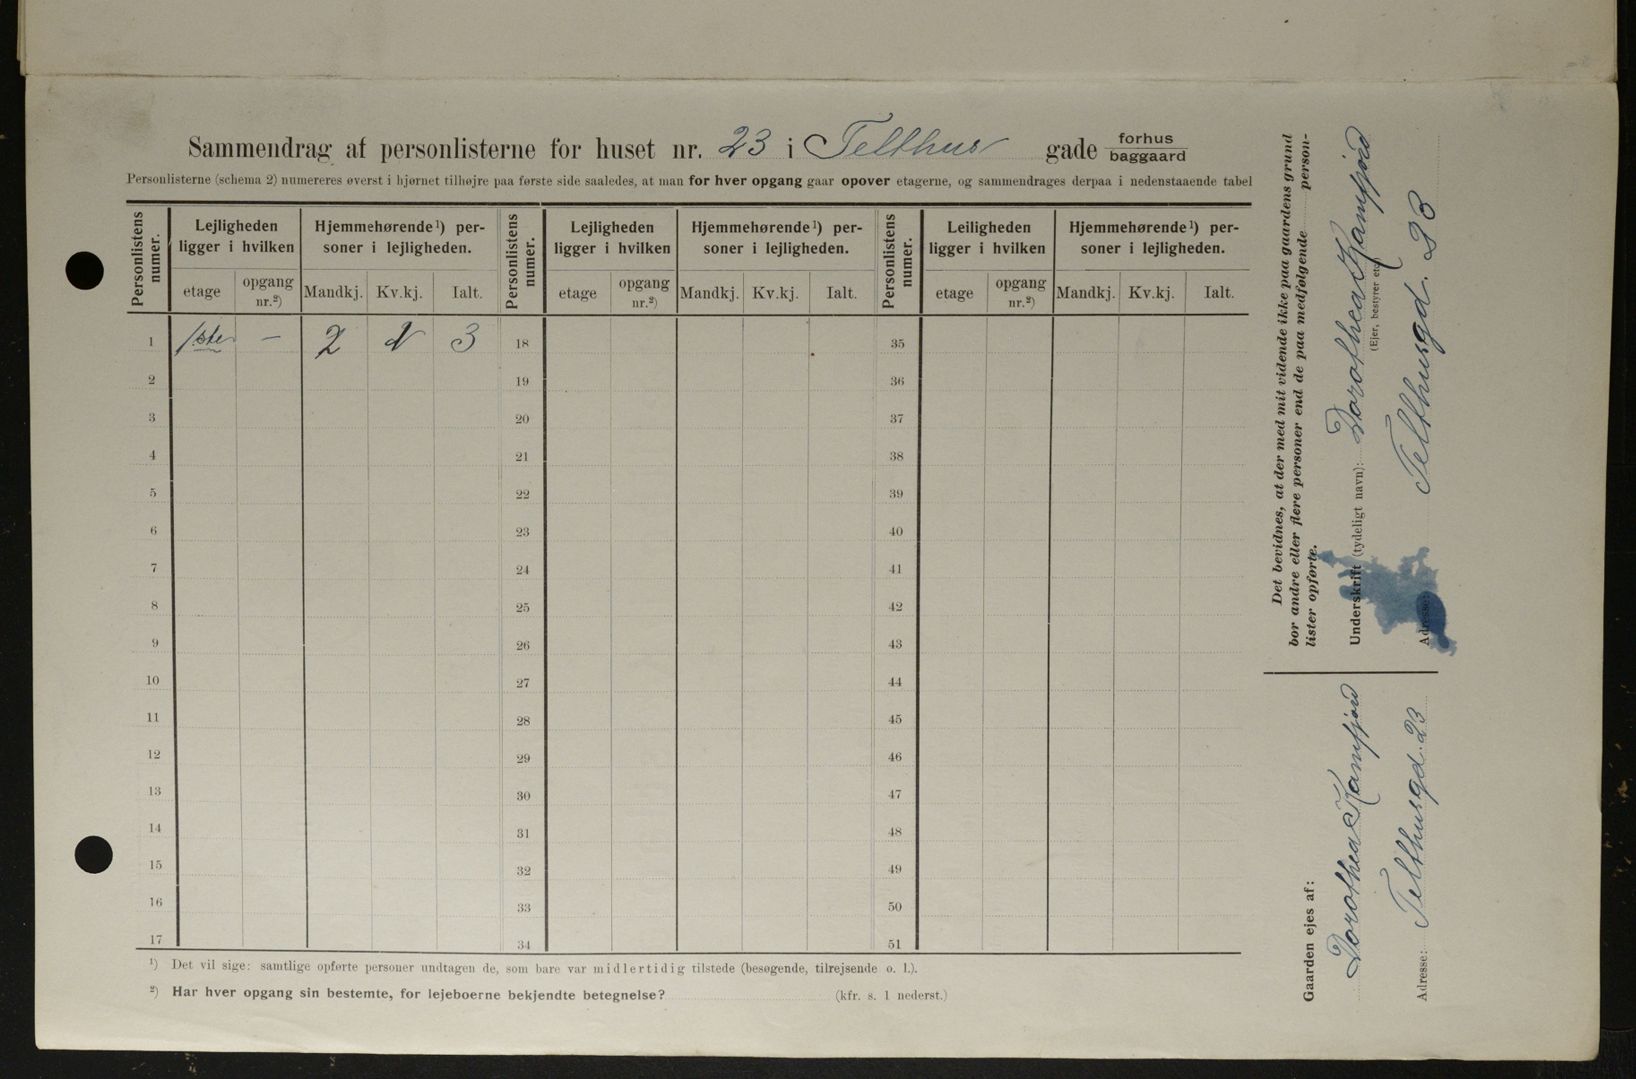 Sammendrag af personlisterne for huset nr. 23 i Telthus gade forhus
baggaard
Personlisterne (schema 2) numereres øverst i hjørnet tilhøjre paa første side saaledes, at man for hver opgang gaar opover etagerne, og sammendrages derpaa i nedenstaaende tabel
Personlistens numer. Lejligheden ligger i hvilken Hjemmehørende¹) personer i lejligheden. Personlistens numer. Lejligheden ligger i hvilken Hjemmehørende¹) personer i lejligheden. Personlistens numer. Leiligheden ligger i hvilken Hjemmehørende¹) personer i lejligheden.
etage opgang nr.²) Mandkj. Kv.kj. Ialt. etage opgang nr.²) Mandkj. Kv.kj. Ialt. etage opgang nr.²) Mandkj. Kv.kj. Ialt.
1 1ste — 2 1 3 18 35
2 19 36
3 20 37
4 21 38
5 22 39
6 23 40
7 24 41
8 25 42
9 26 43
10 27 44
11 28 45
12 29 46
13 30 47
14 31 48
15 32 49
16 33 50
17 34 51
¹) Det vil sige: samtlige opførte personer undtagen de, som bare var midlertidig tilstede (besøgende, tilrejsende o. l.).
²) Har hver opgang sin bestemte, for lejeboerne bekjendte betegnelse? (kfr. s. 1 nederst.)
Det bevidnes, at der med mit vidende ikke paa gaardens grund
bor andre eller flere personer end de paa medfølgende person-
lister opførte.
Underskrift (tydeligt navn): Dorothea Kamfjord
(Ejer, bestyrer etc.)
Adresse: Telthusgd. 23
Gaarden ejes af:
Dorothea Kamfjord
Adresse: Telthusgd. 23